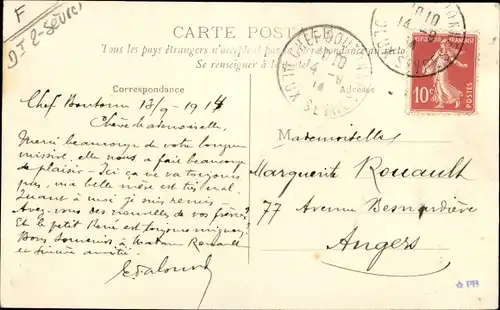 F
D. 2-Sèvres
CARTE POSTALE
Tous les pays étrangers n'acceptent pas la correspondance au recto
Se renseigner à la
Correspondance
Adresse
CHEF-BOUTONNE
14 -9
14
DEUX SÈVRES
10
14 -9
DEUX SÈVRES
10c
POSTES
Chef Boutonne 13/9-1914
Chère Mademoiselle,
Merci beaucoup de votre longue
missive, elle nous a fait beaucoup
de plaisir - Ici ça va toujours
pas, ma belle mère est très mal.
Quant à moi je suis remis -
Avez-vous des nouvelles de vos frères?
Et le petit René est toujours mignon?
Bons souvenirs à Madame Rouault
et sincère amitié
Mademoiselle
Marguerite Rouault
77 Avenue Besnardière
Angers
PB